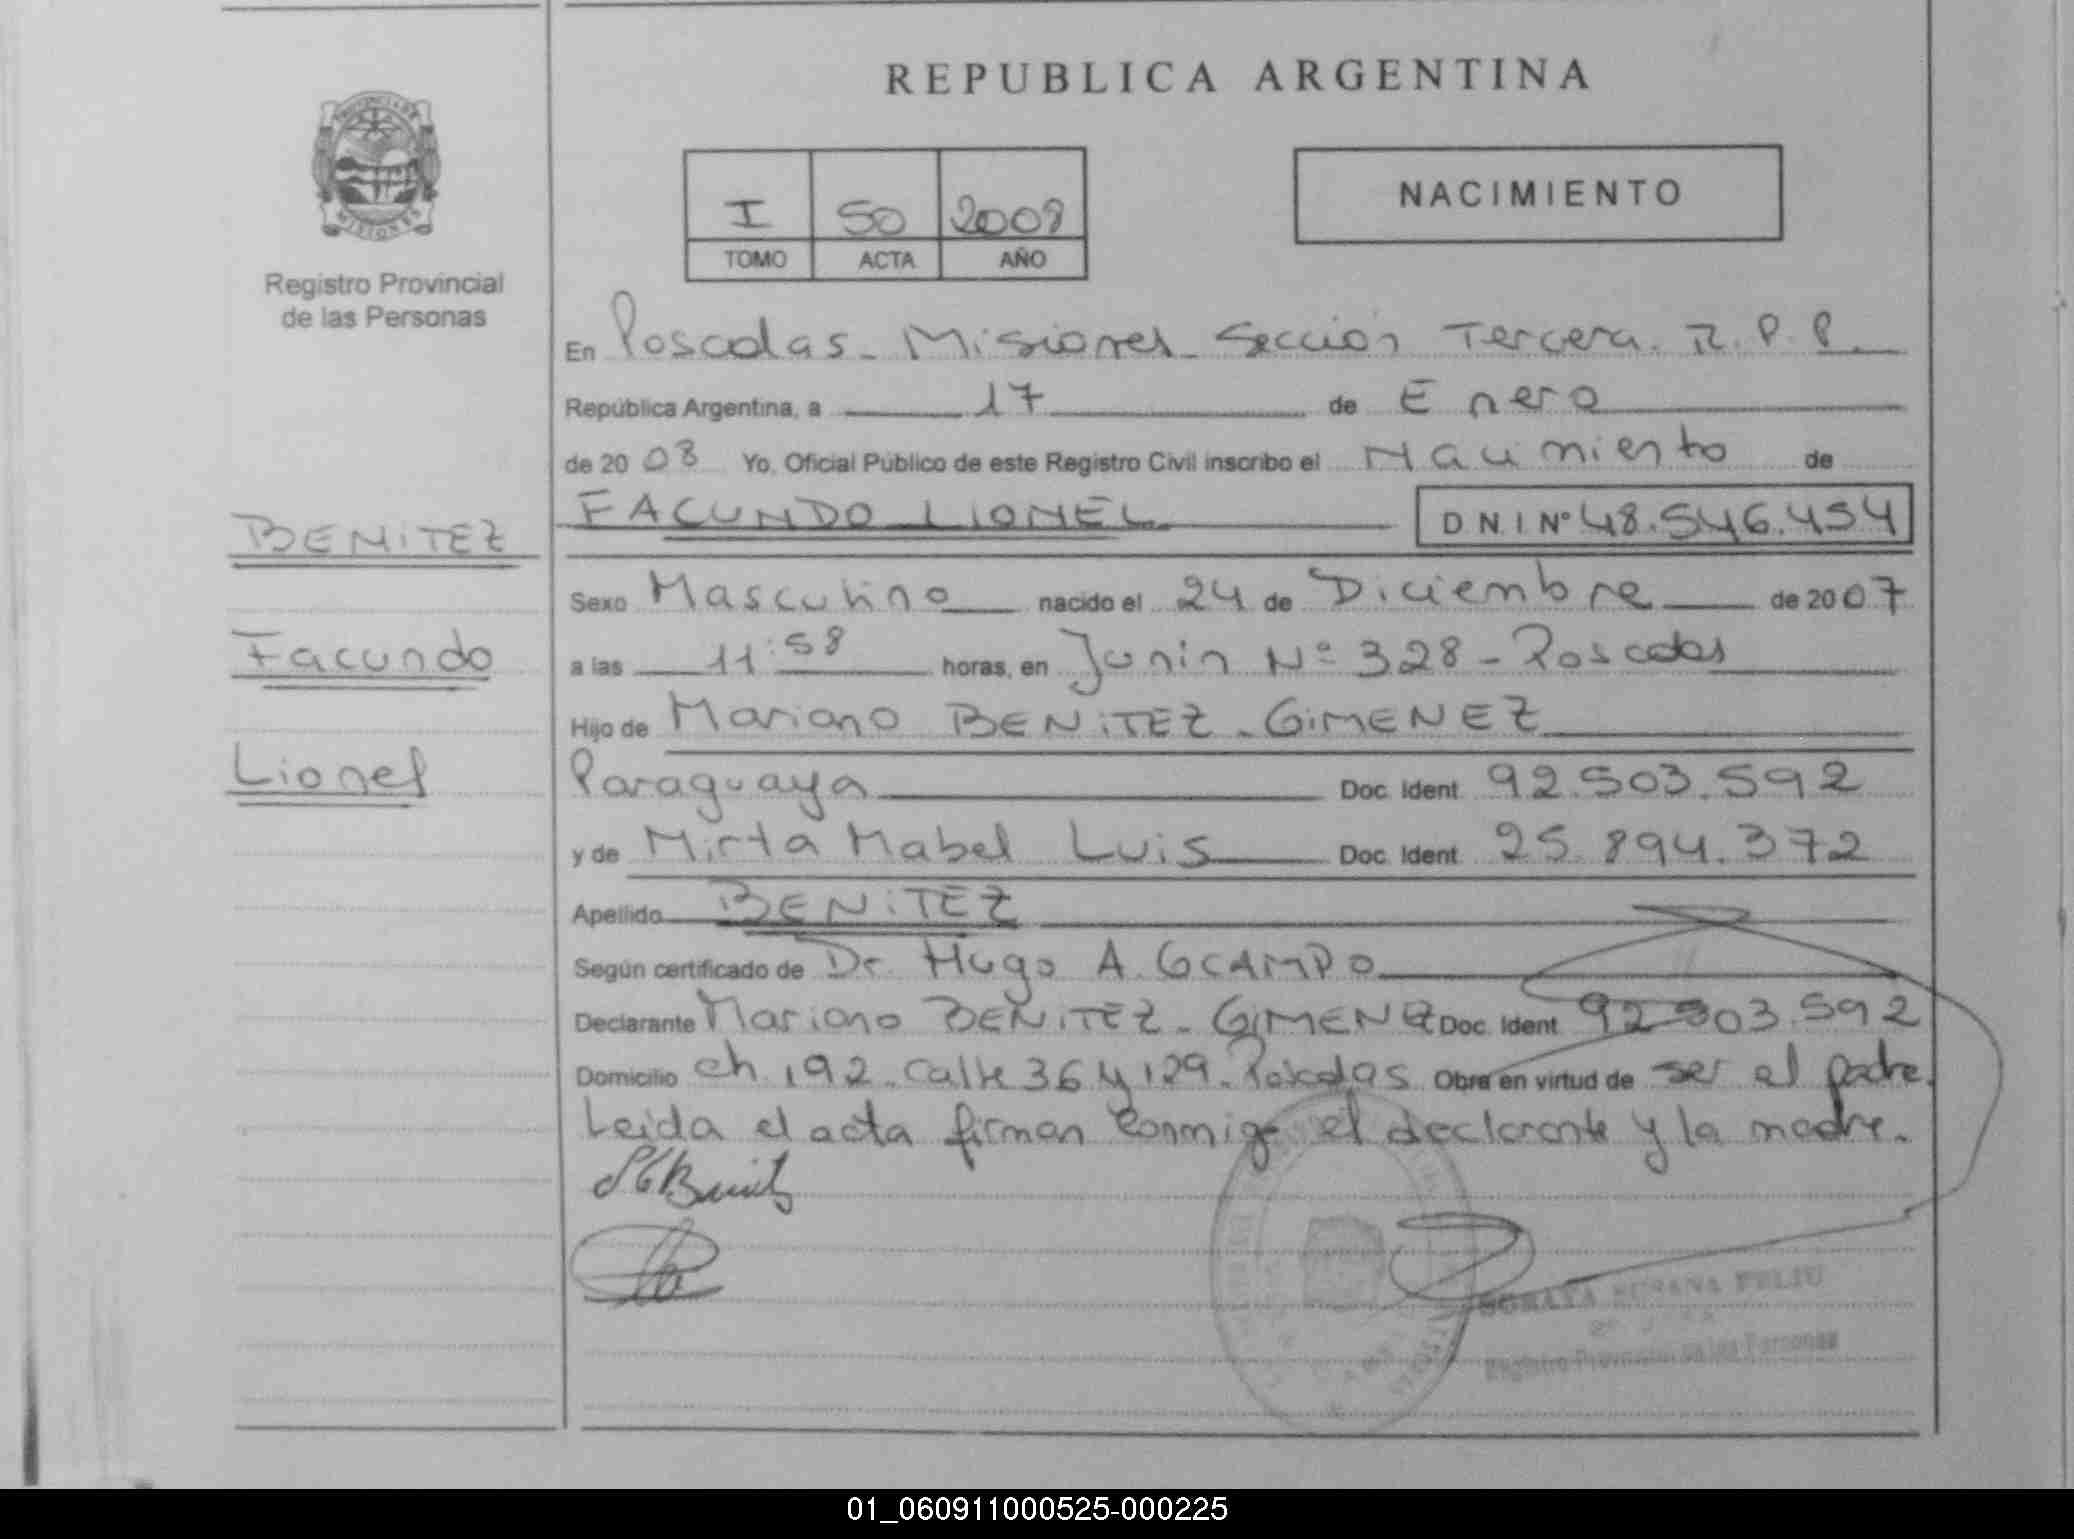 REPUBLICA ARGENTINA
PROVINCIA DE
MISIONES
Registro Provincial
de las Personas
NACIMIENTO
I 50 2008
TOMO ACTA AÑO
En Posadas - Misiones - Sección Tercera. R. P. P.
República Argentina, a 17 de Enero
de 20 08 Yo, Oficial Público de este Registro Civil inscribo el Nacimiento de
FACUNDO LIONEL D.N.I Nº 48.546.454
BENITEZ
Facundo
Lionel
Sexo Masculino nacido el 24 de Diciembre de 20 07
a las 11:58 horas, en Junin Nº 328 - Posadas
Hijo de Mariano BENITEZ - GIMENEZ
Paraguaya Doc. Ident. 92.503.592
y de Mirta Mabel Luis Doc. Ident. 25.894.372
Apellido BENITEZ
Según certificado de Dr. Hugo A. OCAMPO
Declarante Mariano BENITEZ - GIMENEZ Doc. Ident. 92.503.592
Domicilio ch. 192. calle 36 y 129. Posadas Obra en virtud de ser el padre.
Leida el acta firman conmigo el declarante y la madre.
SUSANA FELIU
Registro Provincial de las Personas
01_060911000525-000225